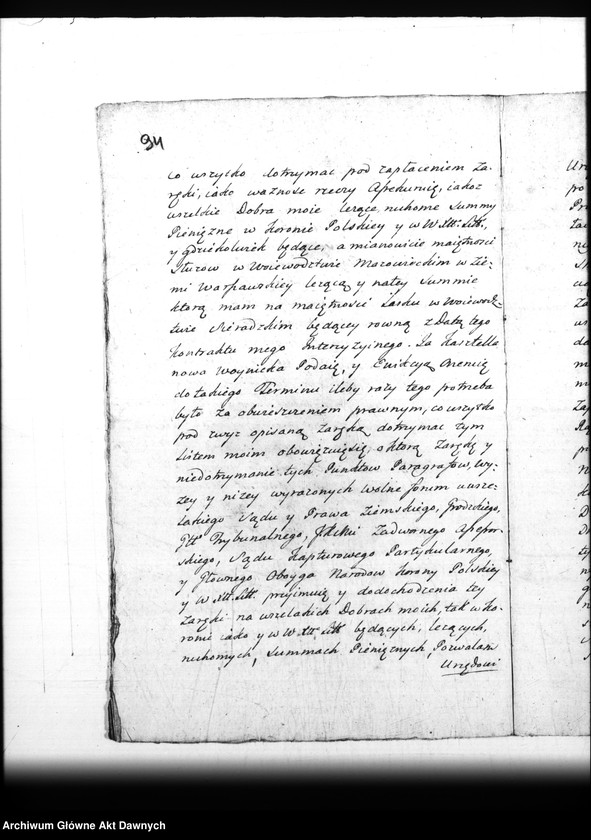 94
co wszytko dotrzymac pod zapłaceniem Za-
ręki, iako waznosc rzeczy Aprekuiącey, iakoż
wszelkie Dobra moie leżące, ruchome Summy
Pieniężne w Koronie Polskiey y w W. Xtt. Litt.
y gdziekolwiek będące, a mianowicie maiętnosci
w Woiewodztwie Mazowieckim w Zie-
mi Warszawskiey leżącą y na tey Summie
ktorą mam na maiętnosci Lasku w Woiewodz-
twie Sieradzkim będącey rowną z Datą tego
Kontraktu mego Intercyzyinego. Ja Kasztella-
nowa Woynicka Podaię, y Ewikcyą Wnoszę
do takiego Terminu ileby razy tego potrzeba
było za obwieszczeniem prawnym, co wszytko
pod zwyz opisaną Zaręką dotrzymac tym
Listem moim obowięzuię się, o ktorą Zarękę y
niedotrzymanie tych Punktow Paragrafow, Wy-
zey y nizey wyrazonych wolne forum wsze-
lakiego Sądu y Prawa Ziemskiego, Grodzkiego,
Gtt Trybunalnego, Zadwornego Assessor-
skiego, Sądu Kapturowego Partykularnego,
y Głownego Oboyga Narodow Korony Polskiey
y W. Xtt. Litt. przyimuię y do dochodzenia tey
Zaręki na wszelakich Dobrach moich, tak w Ko-
ronie iako y w W. Xtt. Litt. będących, leżących,
ruchomych, Summach Pieniężnych, Pozwalam
Urzędowi
Archiwum Główne Akt Dawnych